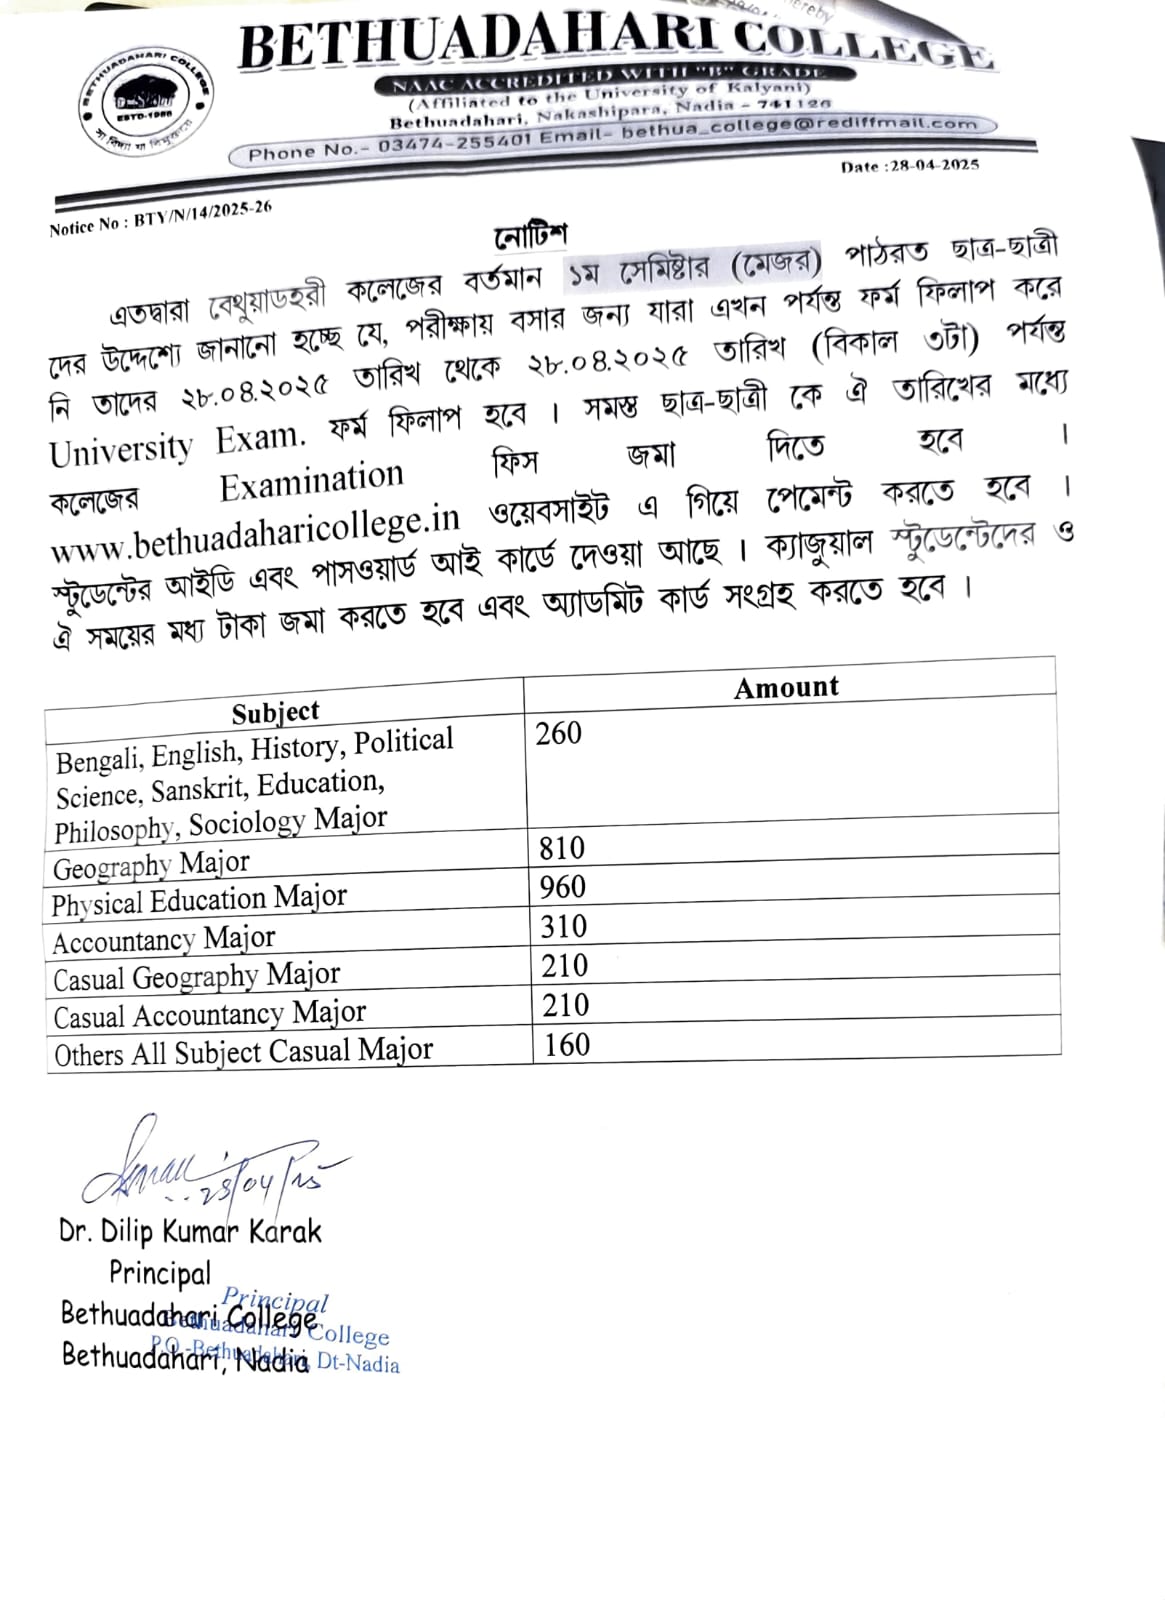 hereby
BETHUADAHARI COLLEGE
NAAC ACCREDITED WITH "B" GRADE
(Affiliated to the University of Kalyani)
Bethuadahari, Nakashipara, Nadia - 741126
Phone No.- 03474-255401 Email- bethua_college@rediffmail.com
BETHUADAHARI COLLEGE
ESTD-1986
Date :28-04-2025
Notice No : BTY/N/14/2025-26
নোটিশ
এতদ্বারা বেথুয়াডহরী কলেজের বর্তমান ১ম সেমিষ্টার (মেজর) পাঠরত ছাত্র-ছাত্রী
দের উদ্দেশ্যে জানানো হচ্ছে যে, পরীক্ষায় বসার জন্য যারা এখন পর্যন্ত ফর্ম ফিলাপ করে
নি তাদের ২৮.০৪.২০২৫ তারিখ থেকে ২৮.০৪.২০২৫ তারিখ (বিকাল ৩টা) পর্যন্ত
University Exam. ফর্ম ফিলাপ হবে । সমস্ত ছাত্র-ছাত্রী কে ঐ তারিখের মধ্যে
কলেজের Examination ফিস জমা দিতে হবে ।
www.bethuadaharicollege.in ওয়েবসাইট এ গিয়ে পেমেন্ট করতে হবে ।
স্টুডেন্টের আইডি এবং পাসওয়ার্ড আই কার্ডে দেওয়া আছে । ক্যাজুয়াল স্টুডেন্টেদের ও
ঐ সময়ের মধ্য টাকা জমা করতে হবে এবং অ্যাডমিট কার্ড সংগ্রহ করতে হবে ।
Subject Amount
Bengali, English, History, Political 260
Science, Sanskrit, Education,
Philosophy, Sociology Major
Geography Major 810
Physical Education Major 960
Accountancy Major 310
Casual Geography Major 210
Casual Accountancy Major 210
Others All Subject Casual Major 160
28/04/25
Dr. Dilip Kumar Karak
Principal
Bethuadahari College
Bethuadahari, Nadia
Principal
Bethuadahari College
P.O.-Bethuadahari, Dt-Nadia